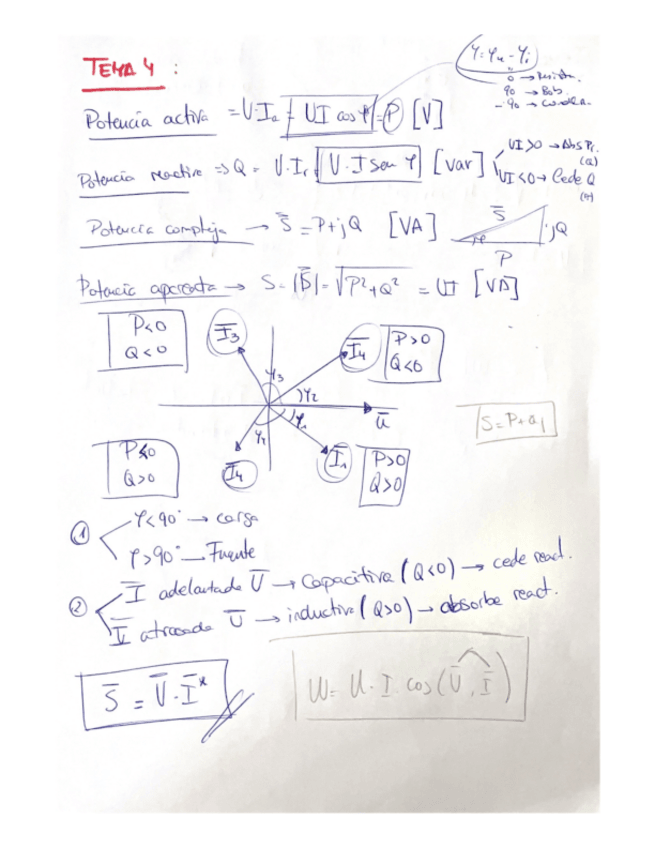 TEMA 4 :
φ=φu - φi
0 → Resist.
90 → Bob.
-90 →
Potencia activa = U·Ia = UI cos φ = P [V]
Potencia reactiva => Q = U·Ir = U·I sen φ [Var]
UI>0 → Abs
UI<0 → Cede Q
Potencia compleja → S̅ = P+jQ [VA]
S̅
φ
jQ
P
Potencia aparente → S = |S̅| = √P²+Q² = UI [VA]
P<0
Q<0
I̅3
I̅4
P>0
Q<0
φ3
φ2
U̅
φ1
S=P+Qj
P<0
Q>0
φ4
I̅4
I̅1
P>0
Q>0
① φ<90° → carga
φ>90° → Fuente
② I̅ adelantada U̅ → Capacitiva (Q<0) → cede react.
I̅ atrasada U̅ → inductiva (Q>0) → absorbe react.
S̅ = V̅·I̅*
W= U·I cos(U̅, I̅)